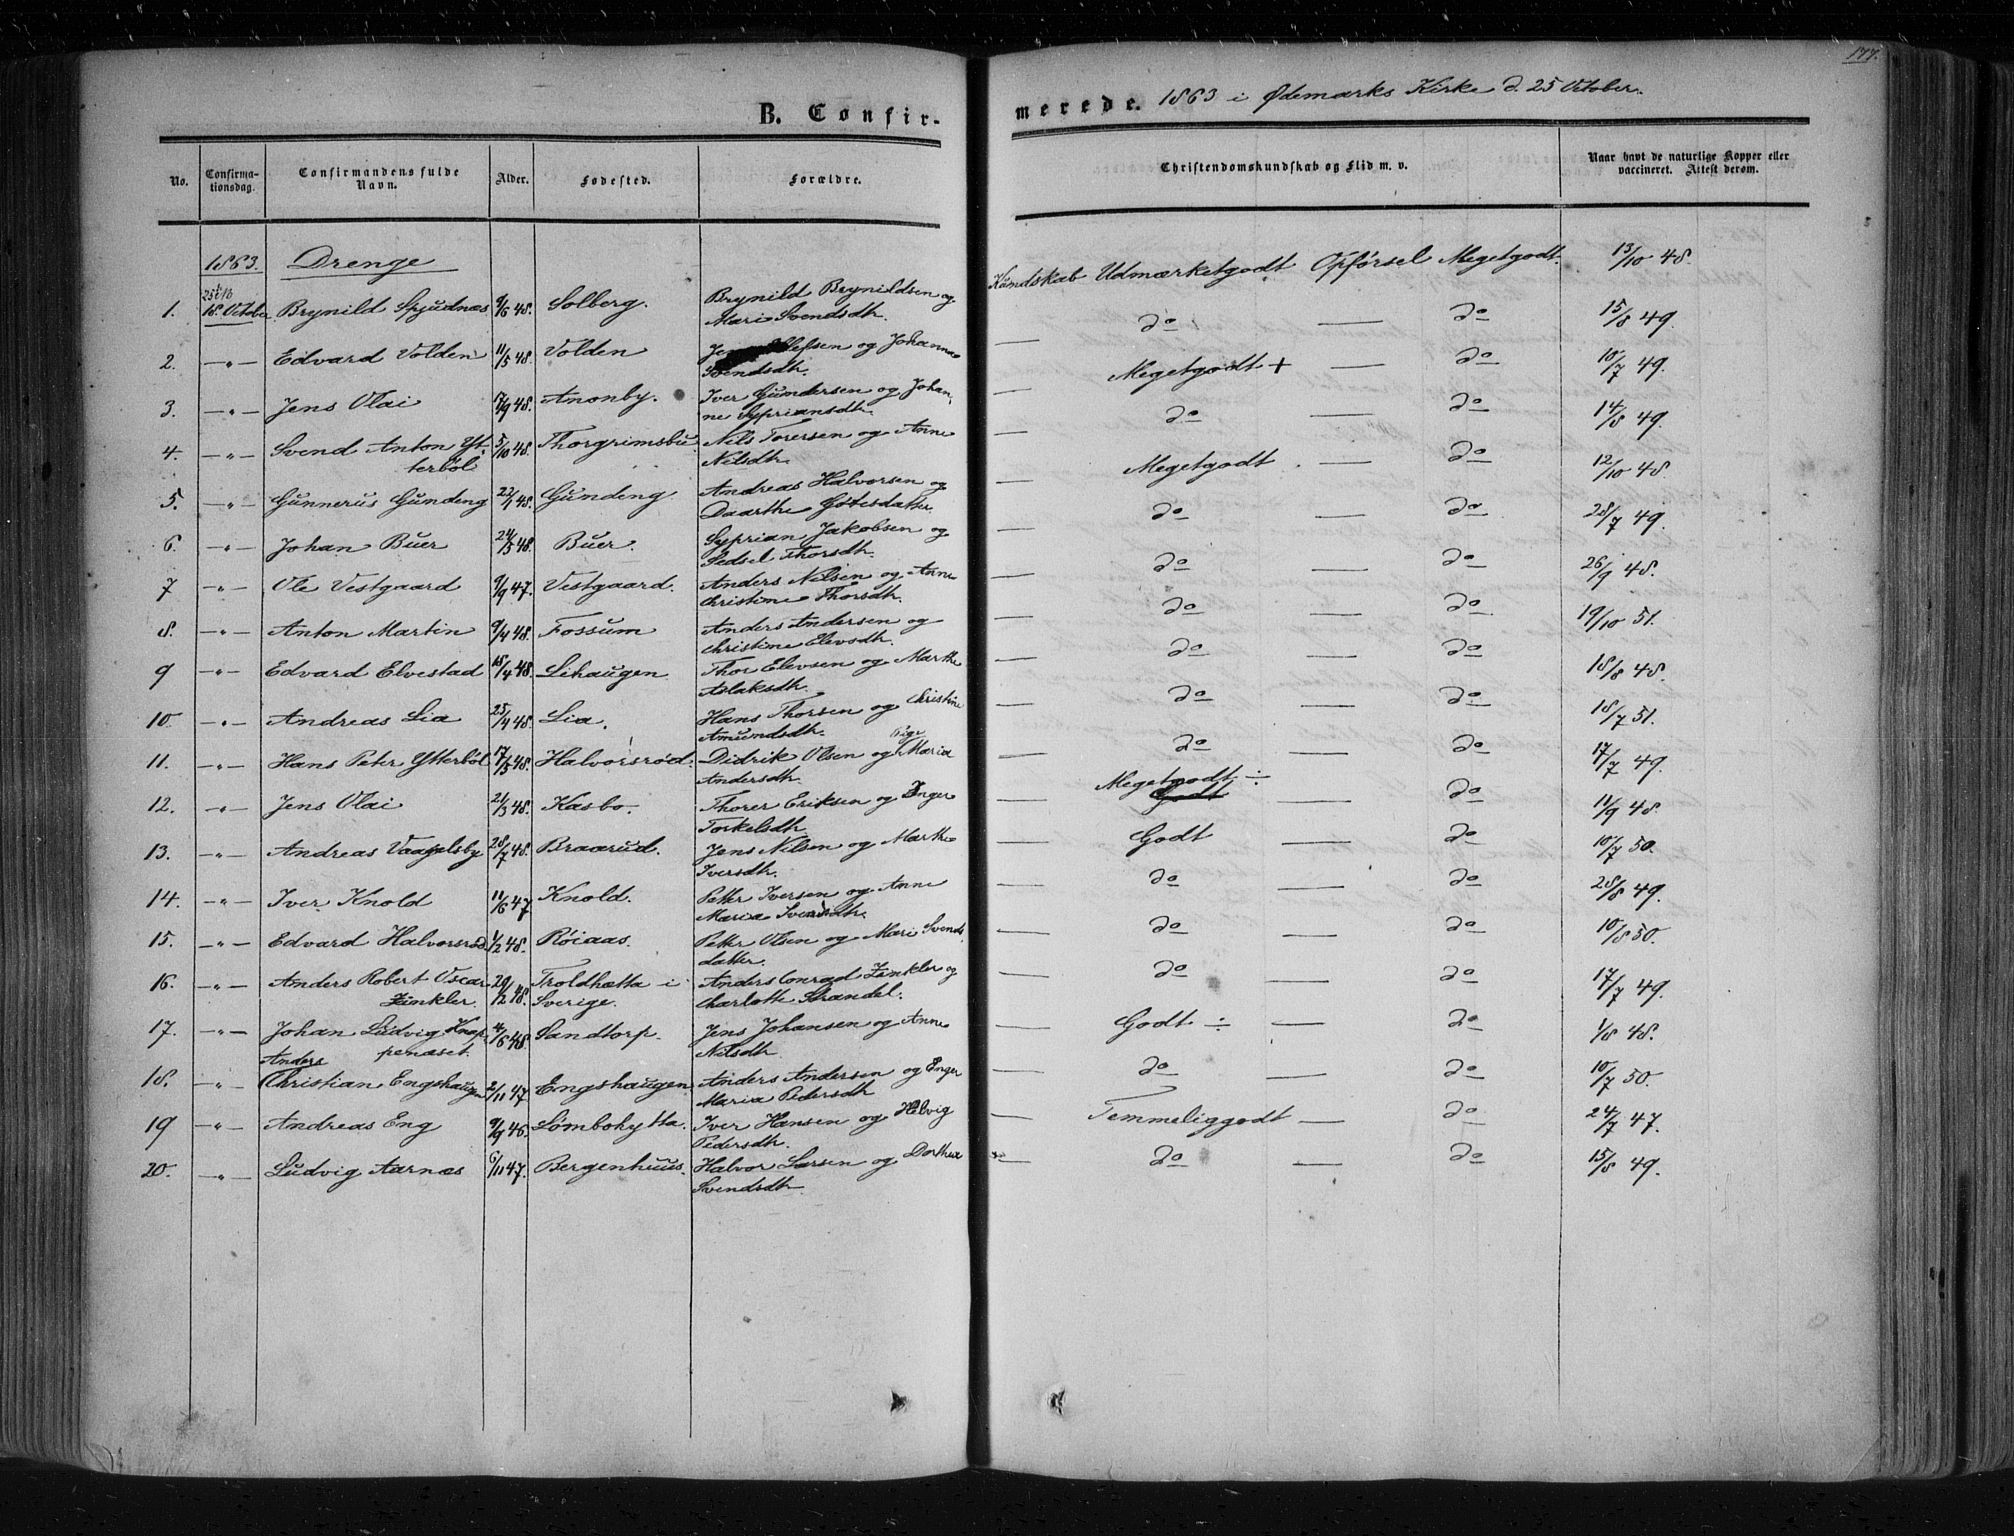 177.
B. Confir-
merede. 1863 i Ødemarks Kirke d. 25 October.
No. Confirma-tionsdag. Confirmandens fulde Navn. Alder. Fødested. Forældre. Christendomskundskab og Flid m. v. Naar havt de naturlige Kopper eller vaccineret. Attest derom.
1863. Drenge
1. 18 October Brynild Spjudnæs 9/6 48. Solberg. Brynild Brynildsen og Mari Svendsdtr. Kundskab Udmærketgodt Opførsel Megetgodt. 13/10 48.
2. —"— Edvard Volden 11/5 48. Volden og Johanne Svendsdtr. — do — do 15/8 49.
3. —"— Jens Olai 17/9 48. Amonby. Iver Gundersen og Johanne Sypriansdtr. — Megetgodt + — do 10/7 49.
4. —"— Svend Anton Ytterböl 5/10 48. Thorgrimsbu. Nils Torersen og Anne Nilsdtr. — do — do 14/8 49.
5. —"— Gunnerus Gundeng 22/1 48. Gundeng Andreas Halvorsen og Daarthe Gotesdatter — Megetgodt. — do 12/10 48.
6. —"— Johan Buer 24/3 48. Buer. Syprian Jakobsen og Sedsel Thorsdtr. — do — do 28/7 49.
7 —"— Ole Vestgaard 9/9 47. Vestgaard. Anders Nilsen og Anne Christine Thorsdtr. — do — do 26/9 48.
8. —"— Anton Martin 9/4 48. Fossum Anders Andersen og Christine Elevsdtr. — do — do 19/10 51.
9 —"— Edvard Elvestad 18/4 48. Lihaugen Thor Elevsen og Marthe Aslaksdtr. — do — do 18/8 48.
10. —"— Andreas Lia 25/4 48. Lia. Hans Thorsen og Christine Amundsdtr. — do — do 18/7 51.
11. —"— Hans Peter Ytterböl 17/5 48. Halvorsrød. Didrik Olsen og Pige Maria Andersdtr. — do — do 17/7 49.
12. —"— Jens Olai 21/3 48. Kasbo. Thorer Eriksen og Inger Torkelsdtr. — Megetgodt ÷ Godt — do 11/9 48.
13. —"— Andreas Vaagelsby 28/7 48. Braarud. Jens Nilsen og Marthe Iversdtr. — Godt — do 10/7 50.
14. —"— Iver Knold 11/6 47. Knold. Petter Iversen og Anne Maria Svendsdtr. — do — do 28/8 49.
15. —"— Edvard Halvorsrød 1/2 48. Röiaas. Petter Olsen og Mari Svendsdatter. — do — do 10/8 50.
16. —"— Anders Robert Oscar Zinkler. 29/12 48. Troldhætta i Sverige. Anders Conrad Zinkler og Charlotte Strandel. — do — do 17/7 49.
17. —"— Johan Ludvig Knappenæset. 4/6 48. Sandtorp. Jens Johansen og Anne Nilsdtr. — Godt ÷ — do 1/8 48.
18. —"— Anders Christian Engshaugen 2/11 47. Engshaugen Anders Andersen og Inger Maria Pedersdtr — do — do 10/7 50.
19 —"— Andreas Eng 9/9 46. Lömbohytta. Iver Hansen og Helvig Pedersdtr. — Temmeliggodt — do 24/7 47.
20. —"— Ludvig Aarnæs 6/11 47. Bergenhuus. Halvor Larsen og Dorthea Svendsdtr. — do — do 15/8 49.